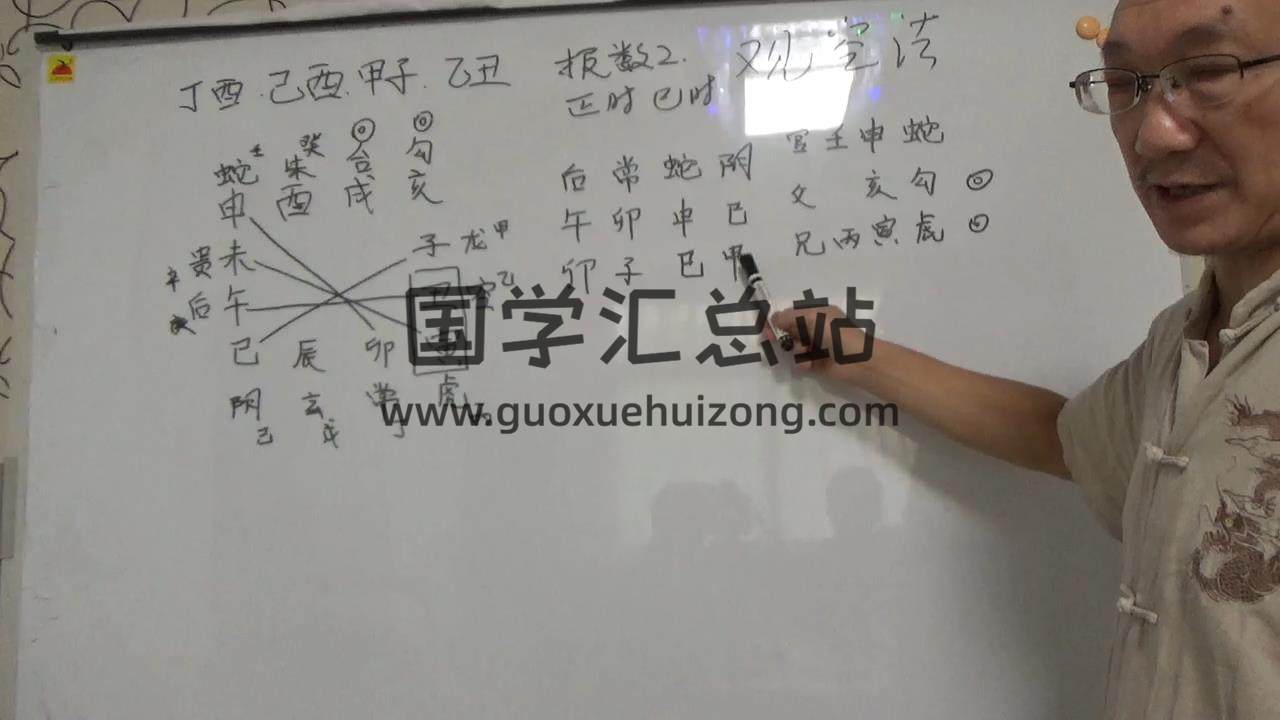 丁酉.己酉.甲子.乙丑 报数2. 观空法
正时 巳时
◎ ◎
蛇壬 朱癸 合 勾
申 酉 戌 亥
辛 贵 未 子 龙 甲
后 午 空 乙
巳 辰 卯
阴 玄 常 虎
己 戊
后 常 蛇 阴
午 卯 申 巳
卯 子 巳 甲
官 壬 申 蛇
父 亥 勾 ◎
兄 丙 寅 虎 ◎
国学汇总站
www.guoxuehuizong.com